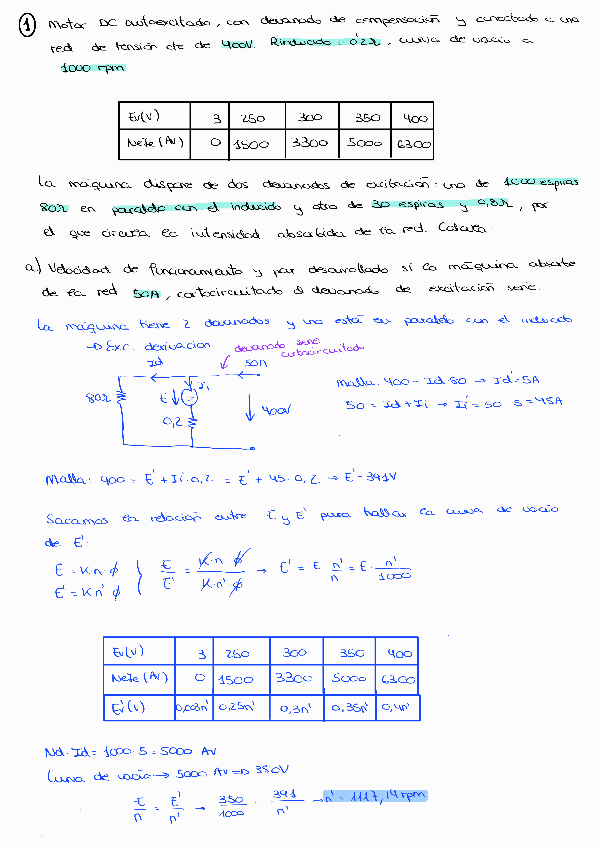 1 Motor DC autoexcitado, con devanado de compensación y conectado a una
red de tensión cte de 400V. Rinducido = 0'2Ω, curva de vacío a
1000 rpm
Ev(V) 3 250 300 350 400
NeIe (Av) 0 1500 3300 5000 6300
La máquina dispone de dos devanados de excitación: uno de 1000 espiras
80Ω en paralelo con el inducido y otro de 30 espiras y 0,8Ω, por
el que circula la intensidad absorbida de la red. Calcula.
a) Velocidad de funcionamiento y par desarrollado si la máquina absorbe
de la red 50A, cortocircuitado el devanado de excitación serie.
La máquina tiene 2 devanados y uno está en paralelo con el inducido
→ Exc. derivación
devanado serie
cortocircuitado
Id 50A
80Ω E' Ii
0,2 400V
Malla: 400 - Id·80 → Id' = 5A
50 = Id + Ii → Ii' = 50 5 = 45A
Malla: 400 = E' + Ii·0,2 = E' + 45·0,2 → E' = 391V
Sacamos la relación entre E y E' para hallar la curva de vacío
de E'.
E = K·n·ϕ
E' = K n' ϕ
E/E' = K·n ϕ/K·n' ϕ → E' = E n'/n = E· n'/1000
Ev(V) 3 250 300 350 400
NeIe (Av) 0 1500 3300 5000 6300
Ev'(V) 0,003n' 0,25n' 0,3n' 0,35n' 0,4n'
Nd·Id = 1000·5 = 5000 Av
Curva de vacío → 5000 Av ⇒ 350V
E/n = E'/n' → 350/1000 · 391/n' → n' = 1117,14 rpm